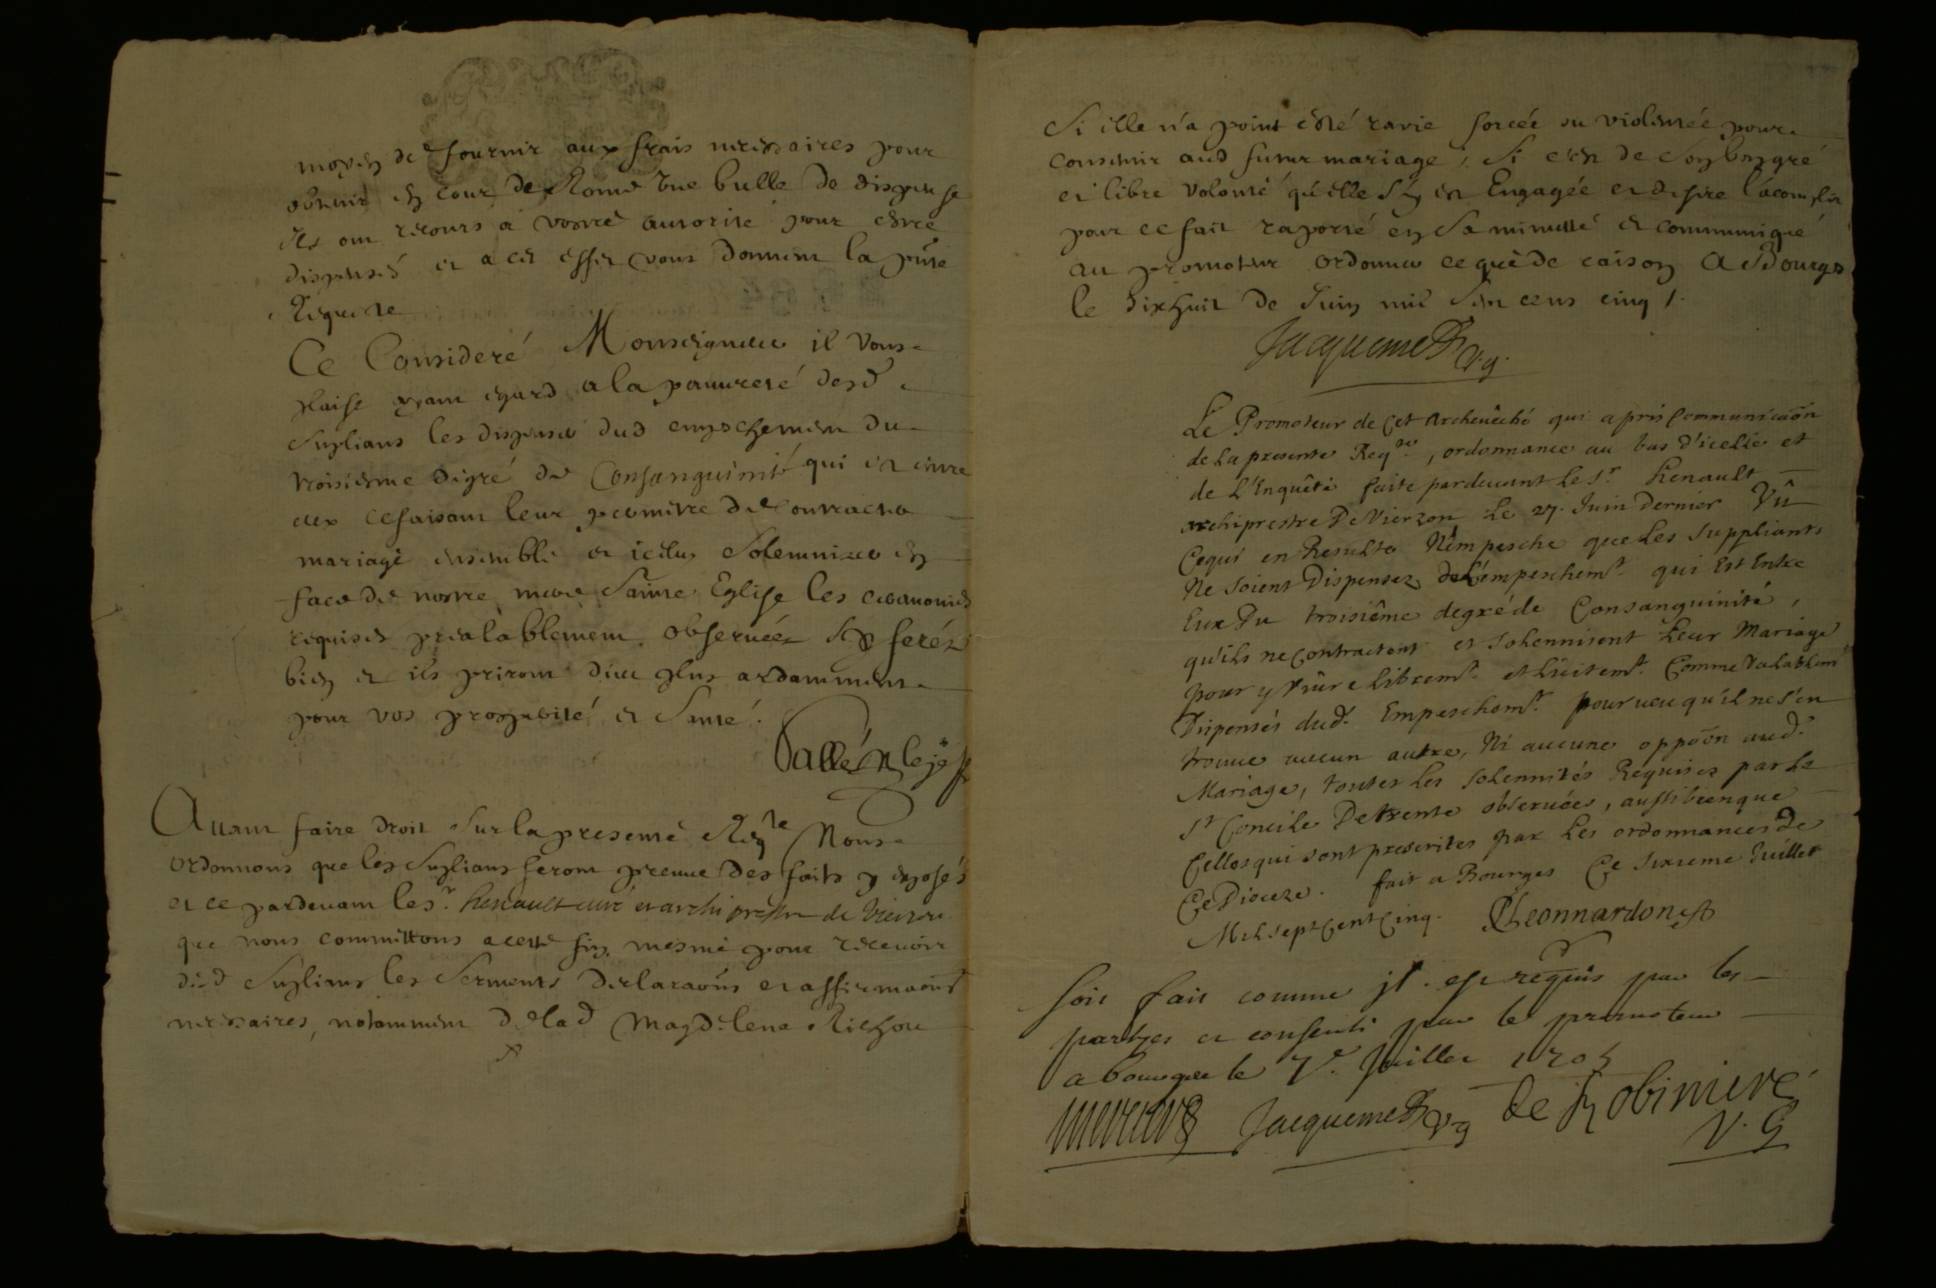 moyen de fournir aux frais necessaires pour
obtenir en cour de Rome une bulle de dispense
Ils ont recours a vostre autorité pour estre
dispensés et a cet effet vous donnent la pnte
Requeste
Ce Consideré Monseigneur il vous
plaise ayant egard a la pauureté desd
suplians les dispenser dud empechement du
troisiesme degré de Consanguinité qui est entre
eux ce faisant leur permettre de Contracter
mariage ensemble et icelui solemniser en
face de nostre mere Sainte Eglise les ceremonies
requises prealablement observées Et ferés
bien et ils priront dieu plus ardamment
pour vos prosperité et santé.
Auant faire droit sur la presente Reqte Nous
ordonnons que les suplians feront preuue des faits y exposés
et ce pardeuant le sr. Renault curé et archiprestre de Vierzon
que nous committons a cette fin, mesme pour receuoir
desd suplians les serments declaraõns et affirmaõns
necessaires, notamment de lad Magdelene Richou
Si elle n'a point esté ravie forcée ou violentée pour
consentir aud futur mariage, Si c'est de son bon gré
et libre volonté qu'elle s'y est Engagée et desire l'acomplir
pour ce fait raporté en la minutte et communiqué
au promoteur ordonner ce que de raison A Bourges
le dixhuit de Juin mil sept cens cinq /.
Jacquemet v.g.
Le Promoteur de Cet Archeuêché qui a pris Communicaõn
de la presente Reqte, ordonnance au bas d'icelle et
de L'Enquête faite pardeuant Le Sr. Renault
archiprestre De Vierzon Le 27. Juin dernier Vû
Cequi en Resulte N'Empesche que Les suppliants
Ne soient Dispensez de L'empeschemt. qui Est Entre
Eux Du troisiême degré de Consanguinité,
qu'ils ne Contractent et solennisent Leur Mariage
pour y viure Libremt. et Licitemt. Comme Valablemt
Dispensés dud. Empeschemt. pourueu qu'il ne s'en
trouue aucun autre, Ni aucune oppõon aud.
Mariage, toutes Les solennités Requises par Le
St Concile De trente obseruées, aussi bien que
Celles qui sont prescrites par Les ordonnances De
Ce Dioceze. fait a Bourges Ce sixieme Juillet
Mil sept Cent Cinq. Leonnardon
soit fait comme il est requis par les
parties et consenti par le promoteur
a bourges le 7e. Juillet 1705
Jacquemet vg de Robiniere
V. G